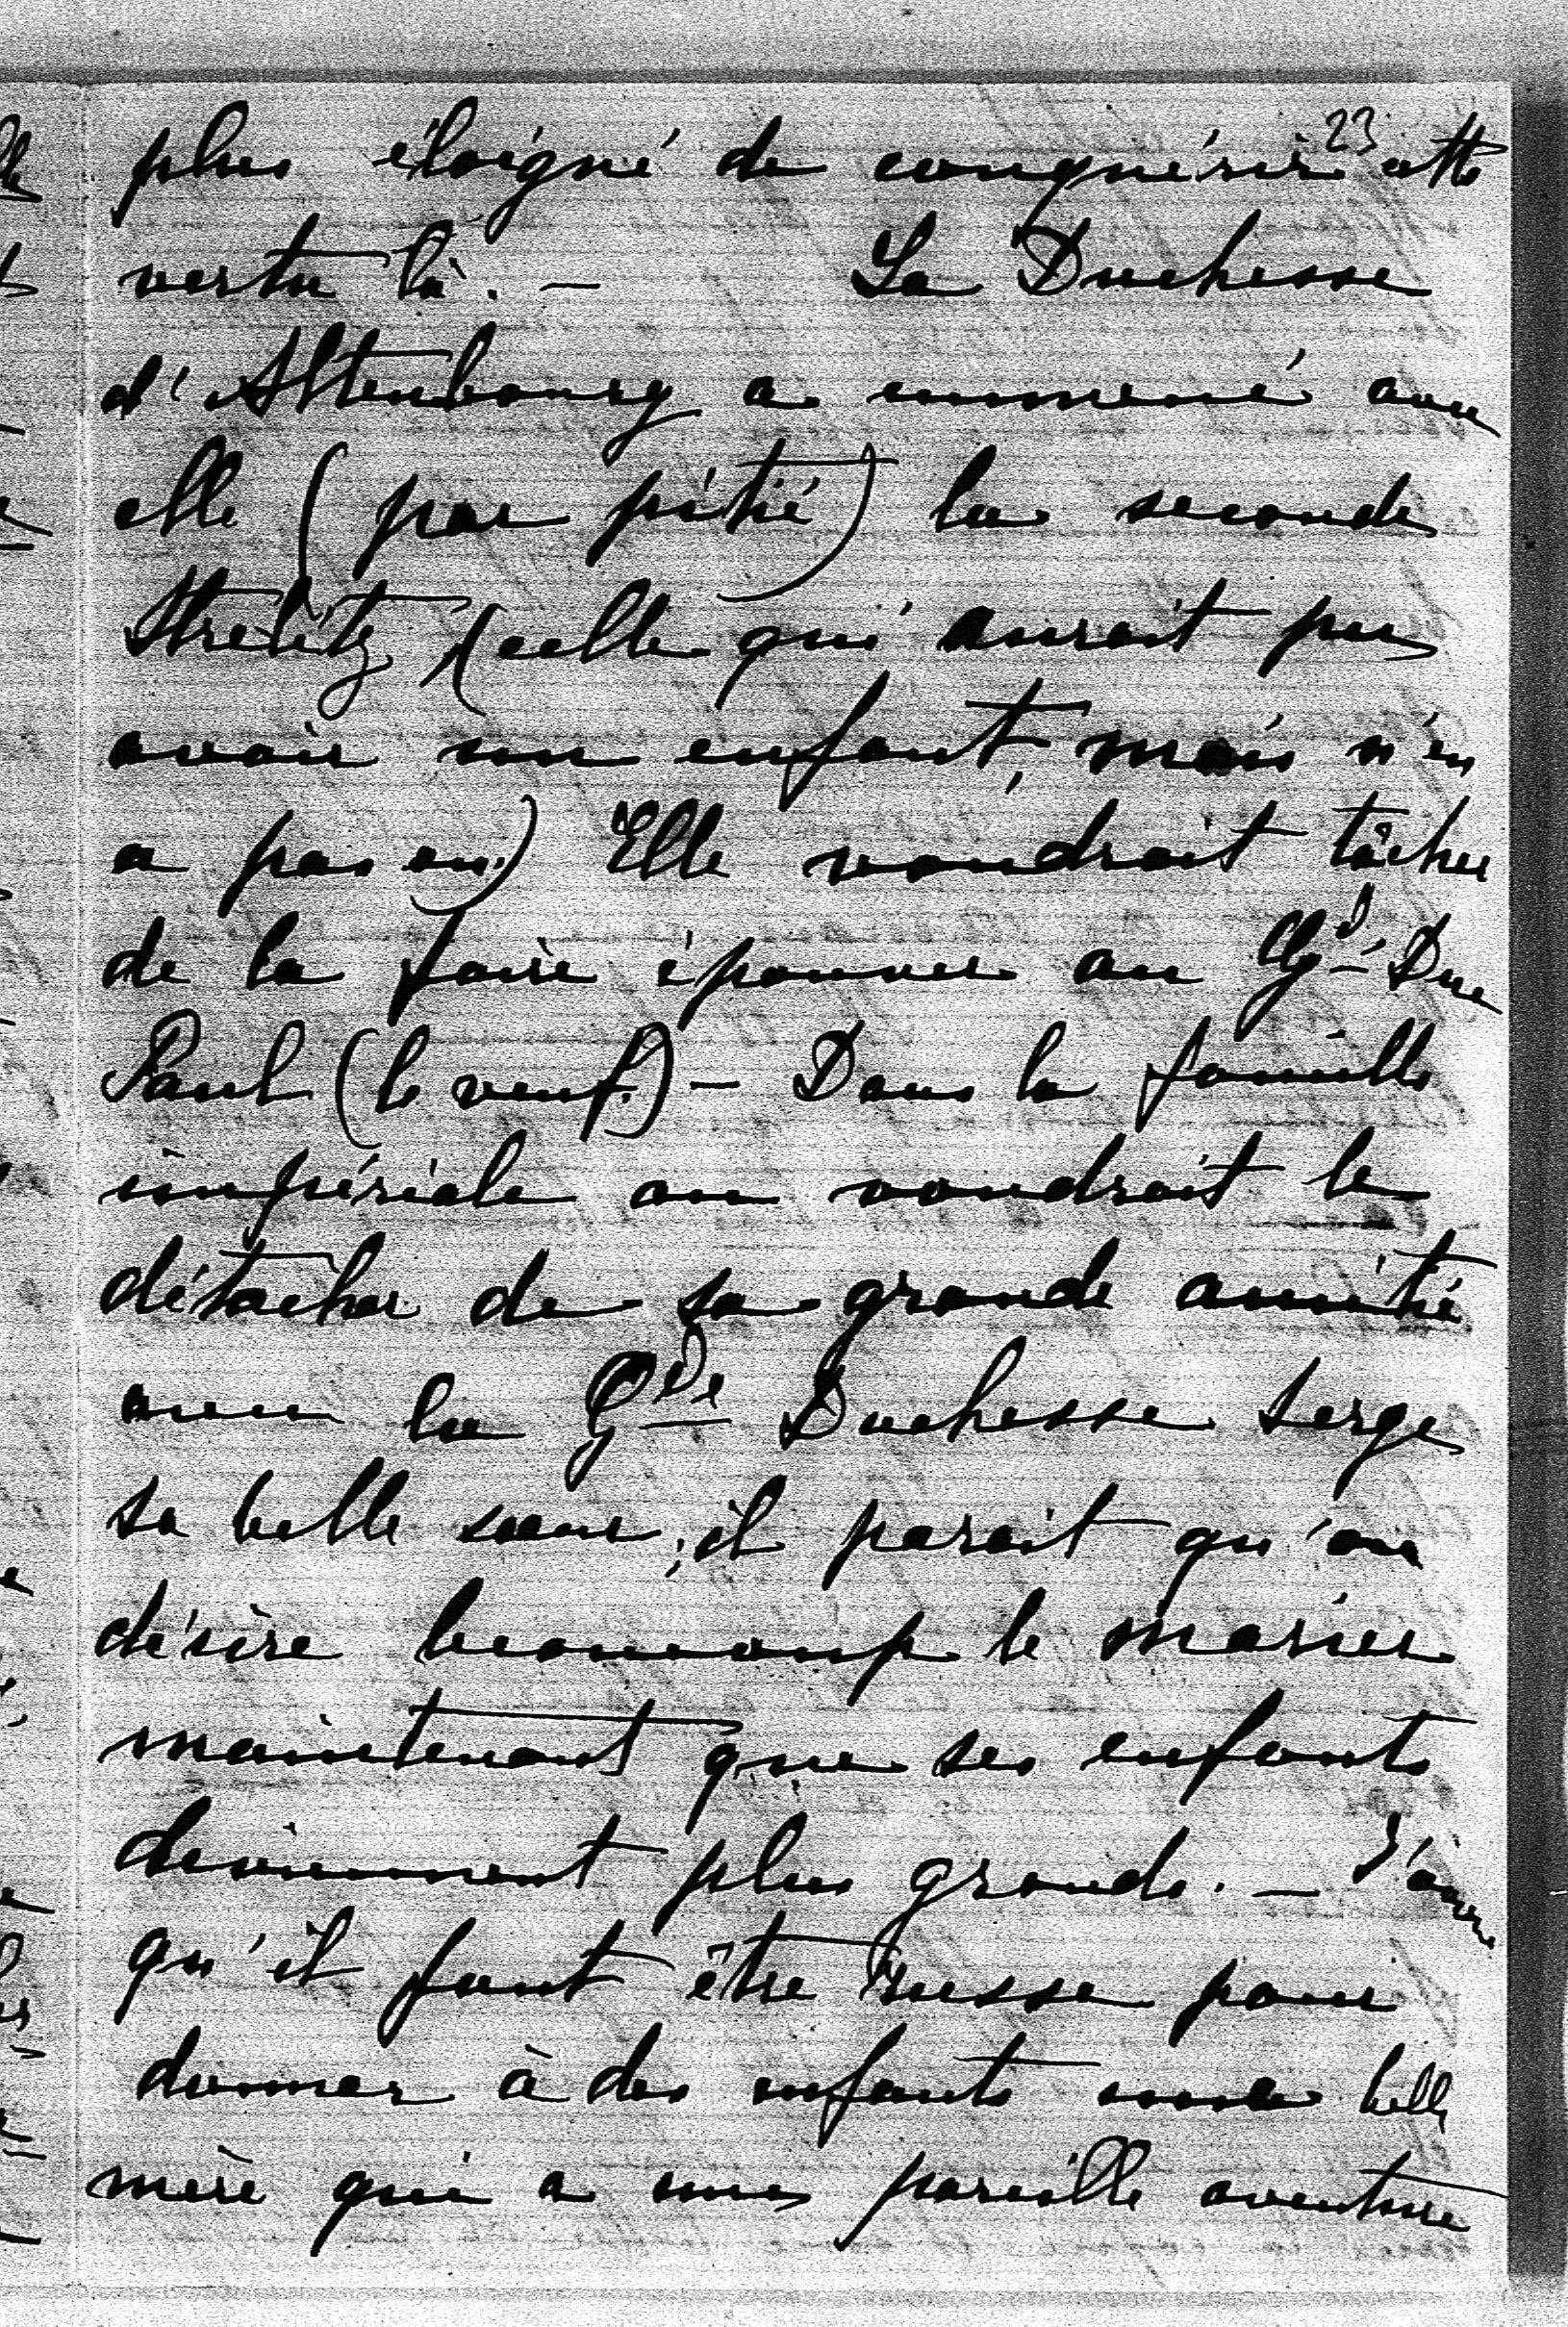 23
plus éloigné de conquérir cette
vertu là. — La Duchesse
d'Altenbourg a emmené avec
elle (par pitié) la seconde
Strelitz (celle qui aurait pu
avoir un enfant, mais n'en
a pas eu.) Elle voudrait tâcher
de la faire épouser au Gd- Duc
Paul (le veuf.) — Dans la famille
impériale on voudrait le
détacher de sa grande amitié
avec la Gde Duchesse Serge
sa belle sœur, il parait qu'on
désire beaucoup le marier
maintenant que ses enfants
deviennent plus grands. — J'avoue
qu'il faut être Russe pour
donner à des enfants une belle
mère qui a une pareille aventure